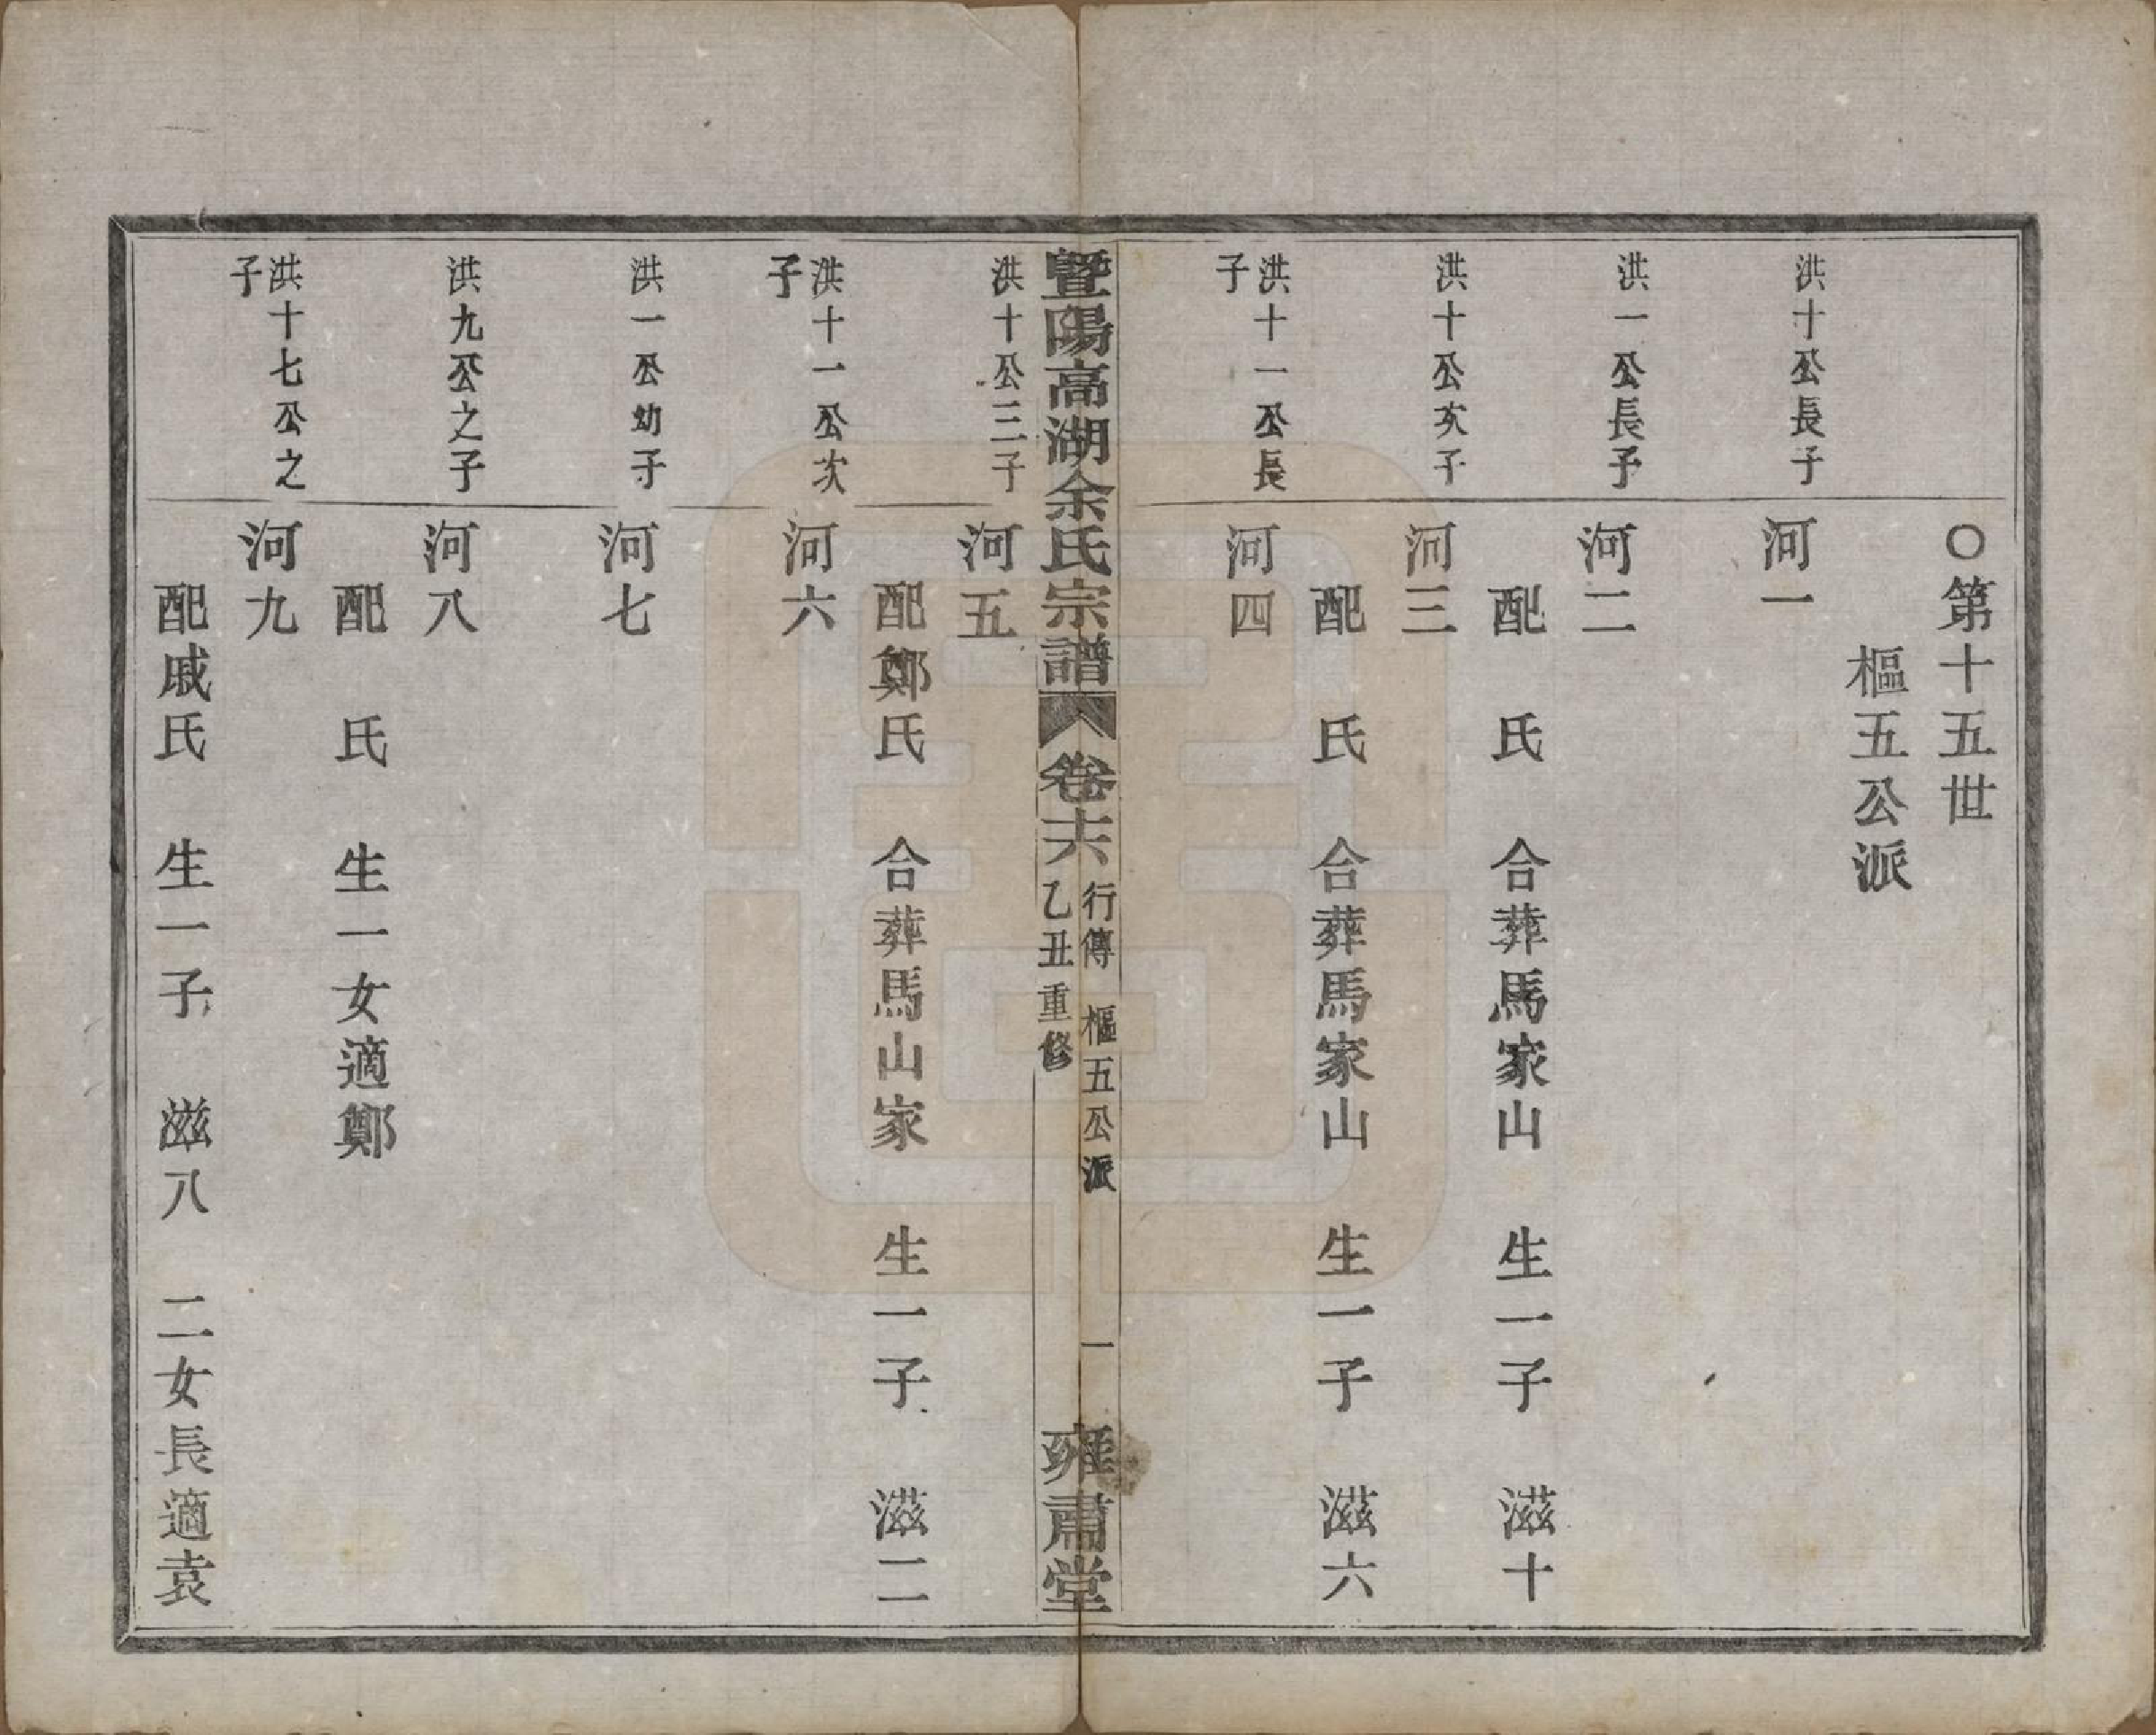 〇第十五世
樞五公派
洪十公長子
河一
洪一公長子
河二
配　氏　合葬馬家山　生一子　滋十
洪十公次子
河三
配　氏　合葬馬家山　生一子　滋六
洪十一公長
子
河四
暨陽高湖余氏宗譜
卷十六
行傳　樞五公派
乙丑重修
一
雍肅堂
洪十公三子
河五
配鄭氏　合葬馬山家　生一子　滋二
洪十一公次
子
河六
洪一公幼子
河七
洪九公之子
河八
配　氏　生一女適鄭
洪十七公之
子
河九
配戚氏　生一子　滋八　二女長適袁